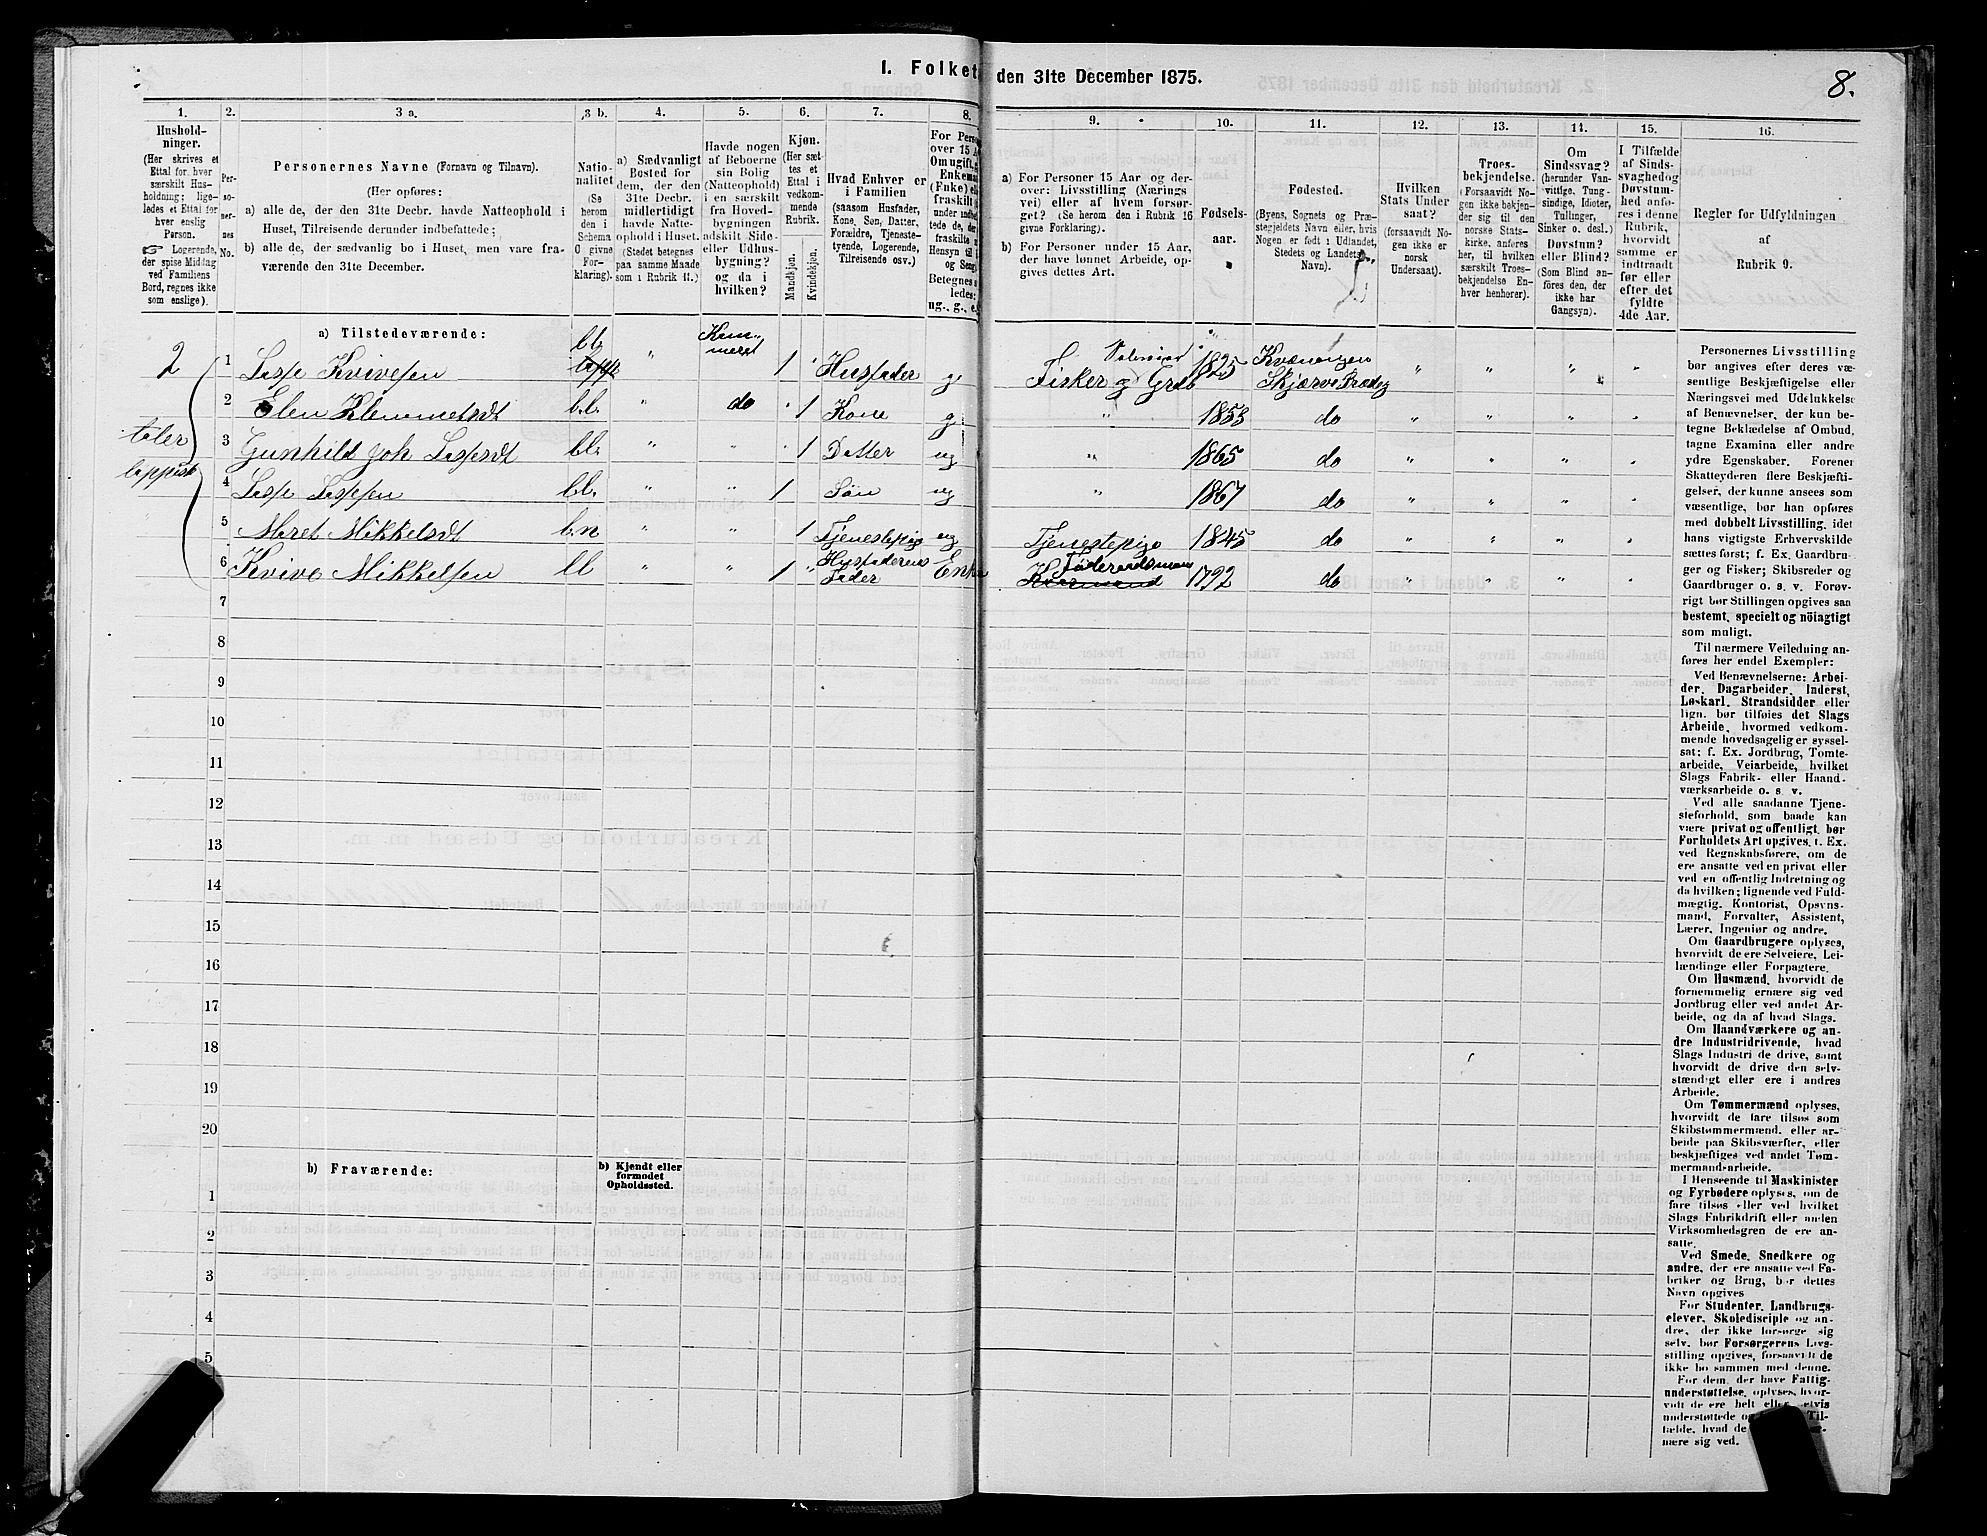 I. Folket den 31te December 1875.
8.
1. 2. 3 a. 3 b. 4. 5. 6. 7. 8. 9. 10. 11. 12. 13. 14. 15. 16.
Hushold-
ninger.
(Her skrives et
Ettal for hver
særskilt Hus-
holdning; lige-
ledes et Ettal for
hver enslig
Person.
☞ Logerende,
der spise Middag
ved Familiens
Bord, regnes ikke
som enslige).
Per-
so-
ner-
nes
No.
Personernes Navne (Fornavn og Tilnavn).
(Her opføres:
a) alle de, der den 31te Decbr. havde Natteophold i
Huset, Tilreisende derunder indbefattede;
b) alle de, der sædvanlig bo i Huset, men vare fra-
værende den 31te December.
Natio-
nalitet
(Se
herom
den i
Schema
O givne
For-
klaring).
a) Sædvanligt
Bosted for
dem, der den
31te Decbr.
midlertidigt
havde Natte-
ophold i Huset.
(Stedet betegnes
paa samme Maade
som i Rubrik 11.)
Havde nogen
af Beboerne
sin Bolig
(Natteophold)
i en særskilt
fra Hoved-
bygningen
adskilt Side-
eller Udhus-
bygning?
og da i
hvilken?
Kjøn.
(Her sæt-
tes et
Ettal i
vedkom-
mende
Rubrik.
Mandkjøn.
Kvindekjøn.
Hvad Enhver er
i Familien
(saasom Husfader,
Kone, Søn, Datter,
Forældre, Tjeneste-
tyende, Logerende,
Tilreisende osv.).
For Pers
over 15 A
Omugift, g
Enkema
(Fuke) ell
fraskilt
under indbe
tede de, de
fraskilte
Hensyn til
og Seng
Betegnes s
ledes:
ug., g., e.
a) For Personer 15 Aar og der-
over: Livsstilling (Nærings
vei) eller af hvem forsør-
get? (Se herom den i Rubrik 16
givne Forklaring).
b) For Personer under 15 Aar,
der have lønnet Arbeide, op-
gives dettes Art.
Fødsels-
aar.
Fødested.
(Byens, Sognets og Præ-
stegjeldets Navn eller, hvis
Nogen er født i Udlandet,
Stedets og Landets
Navn).
Hvilken
Stats Under
saat?
(forsaavidt No-
gen ikke er
norsk
Undersaat).
Troes-
bekjendelse.
(Forsaavidt No-
gen ikke bekjen-
der sig til den
norske Stats-
kirke, anføres
her, til hvilken
særskilt Troes-
bekjendelse En-
hver henhører).
Om
Sindssvag?
(herunder Van-
vittige, Tung-
sindige, Idioter,
Tullinger,
Sinker o. desl.)
Døvstum?
eller Blind?
(Som Blind an-
føres den, der
ikke har
Gangsyn).
I Tilfælde
af Sinds-
svaghed og
Døvstum-
hed anfø-
res i denne
Rubrik,
hvorvidt
samme er
indtraadt
før eller
efter det
fyldte
4de Aar.
Regler for Udfyldningen
af
Rubrik 9.
a) Tilstedeværende:
2
taler
lappisk
1 Lasse Kvivesen bl. " Kam-
meret 1 " Husfader g Fisker og Grdb Selveier 1825 Kvænangen
Skjervø Prædeg " " " "
2 Elen Klemmetsdt b.b. " do " 1 Kone g " 1853 do " " " "
3 Gunhild Joh Lassesdt bb. " " 1 Datter ug " 1865 do " " " "
4 Lasse Lassesen bb. " " 1 Søn ug " 1867 do " " " "
5 Maret Mikkelsdt b.n " " 1 Tjenestepige ug Tjenestepige 1845 do " " " "
6 Kvive Mikkelsen bb " " 1 " Husfaderens
Fader Enke Føderaadsmand 1792 do " " " "
7
8
9
10
11
12
13
14
15
16
17
18
19
20
b) Fraværende:
b) Kjendt eller
formodet
Opholdssted.
1
2
3
4
5
Personernes Livsstilling
bør angives efter deres væ-
sentlige Beskjæftigelse eller
Næringsvei med Udelukkelse
af Benævnelser, der kun be-
tegne Beklædelse af Ombud,
tagne Examina eller andre
ydre Egenskaber. Forener
Skatteyderen flere Beskjæfti-
gelser, der kunne ansees som
væsentlige, bør han opføres
med dobbelt Livsstilling, idet
hans vigtigste Erhvervskilde
sættes først; f. Ex. Gaardbru-
ger og Fisker; Skibsreder og
Gaardbruger o. s. v. Forøv-
rigt bør Stillingen opgives saa
bestemt, specielt og nöiagtigt
som muligt.
Til nærmere Veiledning an-
føres her endel Exempler:
Ved Benævnelserne: Arbei-
der, Dagarbeider, Inderst,
Løskarl, Strandsidder eller
lign. bør tilføies det Slags
Arbeide, hvormed vedkom-
mende hovedsagelig er syssel-
sat; f. Ex. Jordbrug, Tomte-
arbeide, Veiarbeide, hvilket
Slags Fabrik- eller Haand-
værksarbeide o. s. v.
Ved alle saadanne Tjene-
steforhold, som baade kan
være privat og offentligt, bør
Forholdets Art opgives, f. Ex.
ved Regnskabsførere, om de
ere ansatte ved en privat eller
ved en offentlig Indretning og
da hvilken; lignende ved Fuld-
mægtig, Kontorist, Opsyns-
mand, Forvalter, Assistent,
Lærer, Ingeniør og andre.
Om Gaardbrugere oplyses,
hvorvidt de ere Selveiere, Lei-
lændinge eller Forpagtere.
Om Husmænd, hvorvidt de
fornemmelig ernære sig ved
Jordbrug eller ved andet Ar-
beide, og da af hvad Slags.
Om Haandværkere og an-
dre Industridrivende, hvad
Slags Industri de drive, samt
hvorvidt de drive den selv-
stændigt eller ere i andres
Arbeide.
Om Tømmermænd oplyses,
hvorvidt de fare tilsøs som
Skibstømmermænd, eller ar-
beide paa Skibsværfter, eller
beskjæftiges ved andet Tøm-
mermand-arbeide.
I Henseende til Maskinister
og Fyrbødere oplyses, om de
fare tilsøs eller ved hvilket
Slags Fabrikdrift eller anden
Virksomhedsgren de ere an-
satte.
Ved Smede, Snedkere og
andre, der ere ansatte ved Fa-
briker og Brug, bør dettes
Navn opgives
For Studenter, Landbrugs-
elever, Skoledisciple og an-
dre, der ikke forsørge sig
selv, bør Forsørgerens Livs-
stilling opgives, forsaavidt de
ikke bo sammen med denne.
For dem, der have Fattig-
understøttelse, oplyses, hvor-
vidt de ere helt eller delvis
understøttede og Til-
fælde, hvad de
nære sig ved.